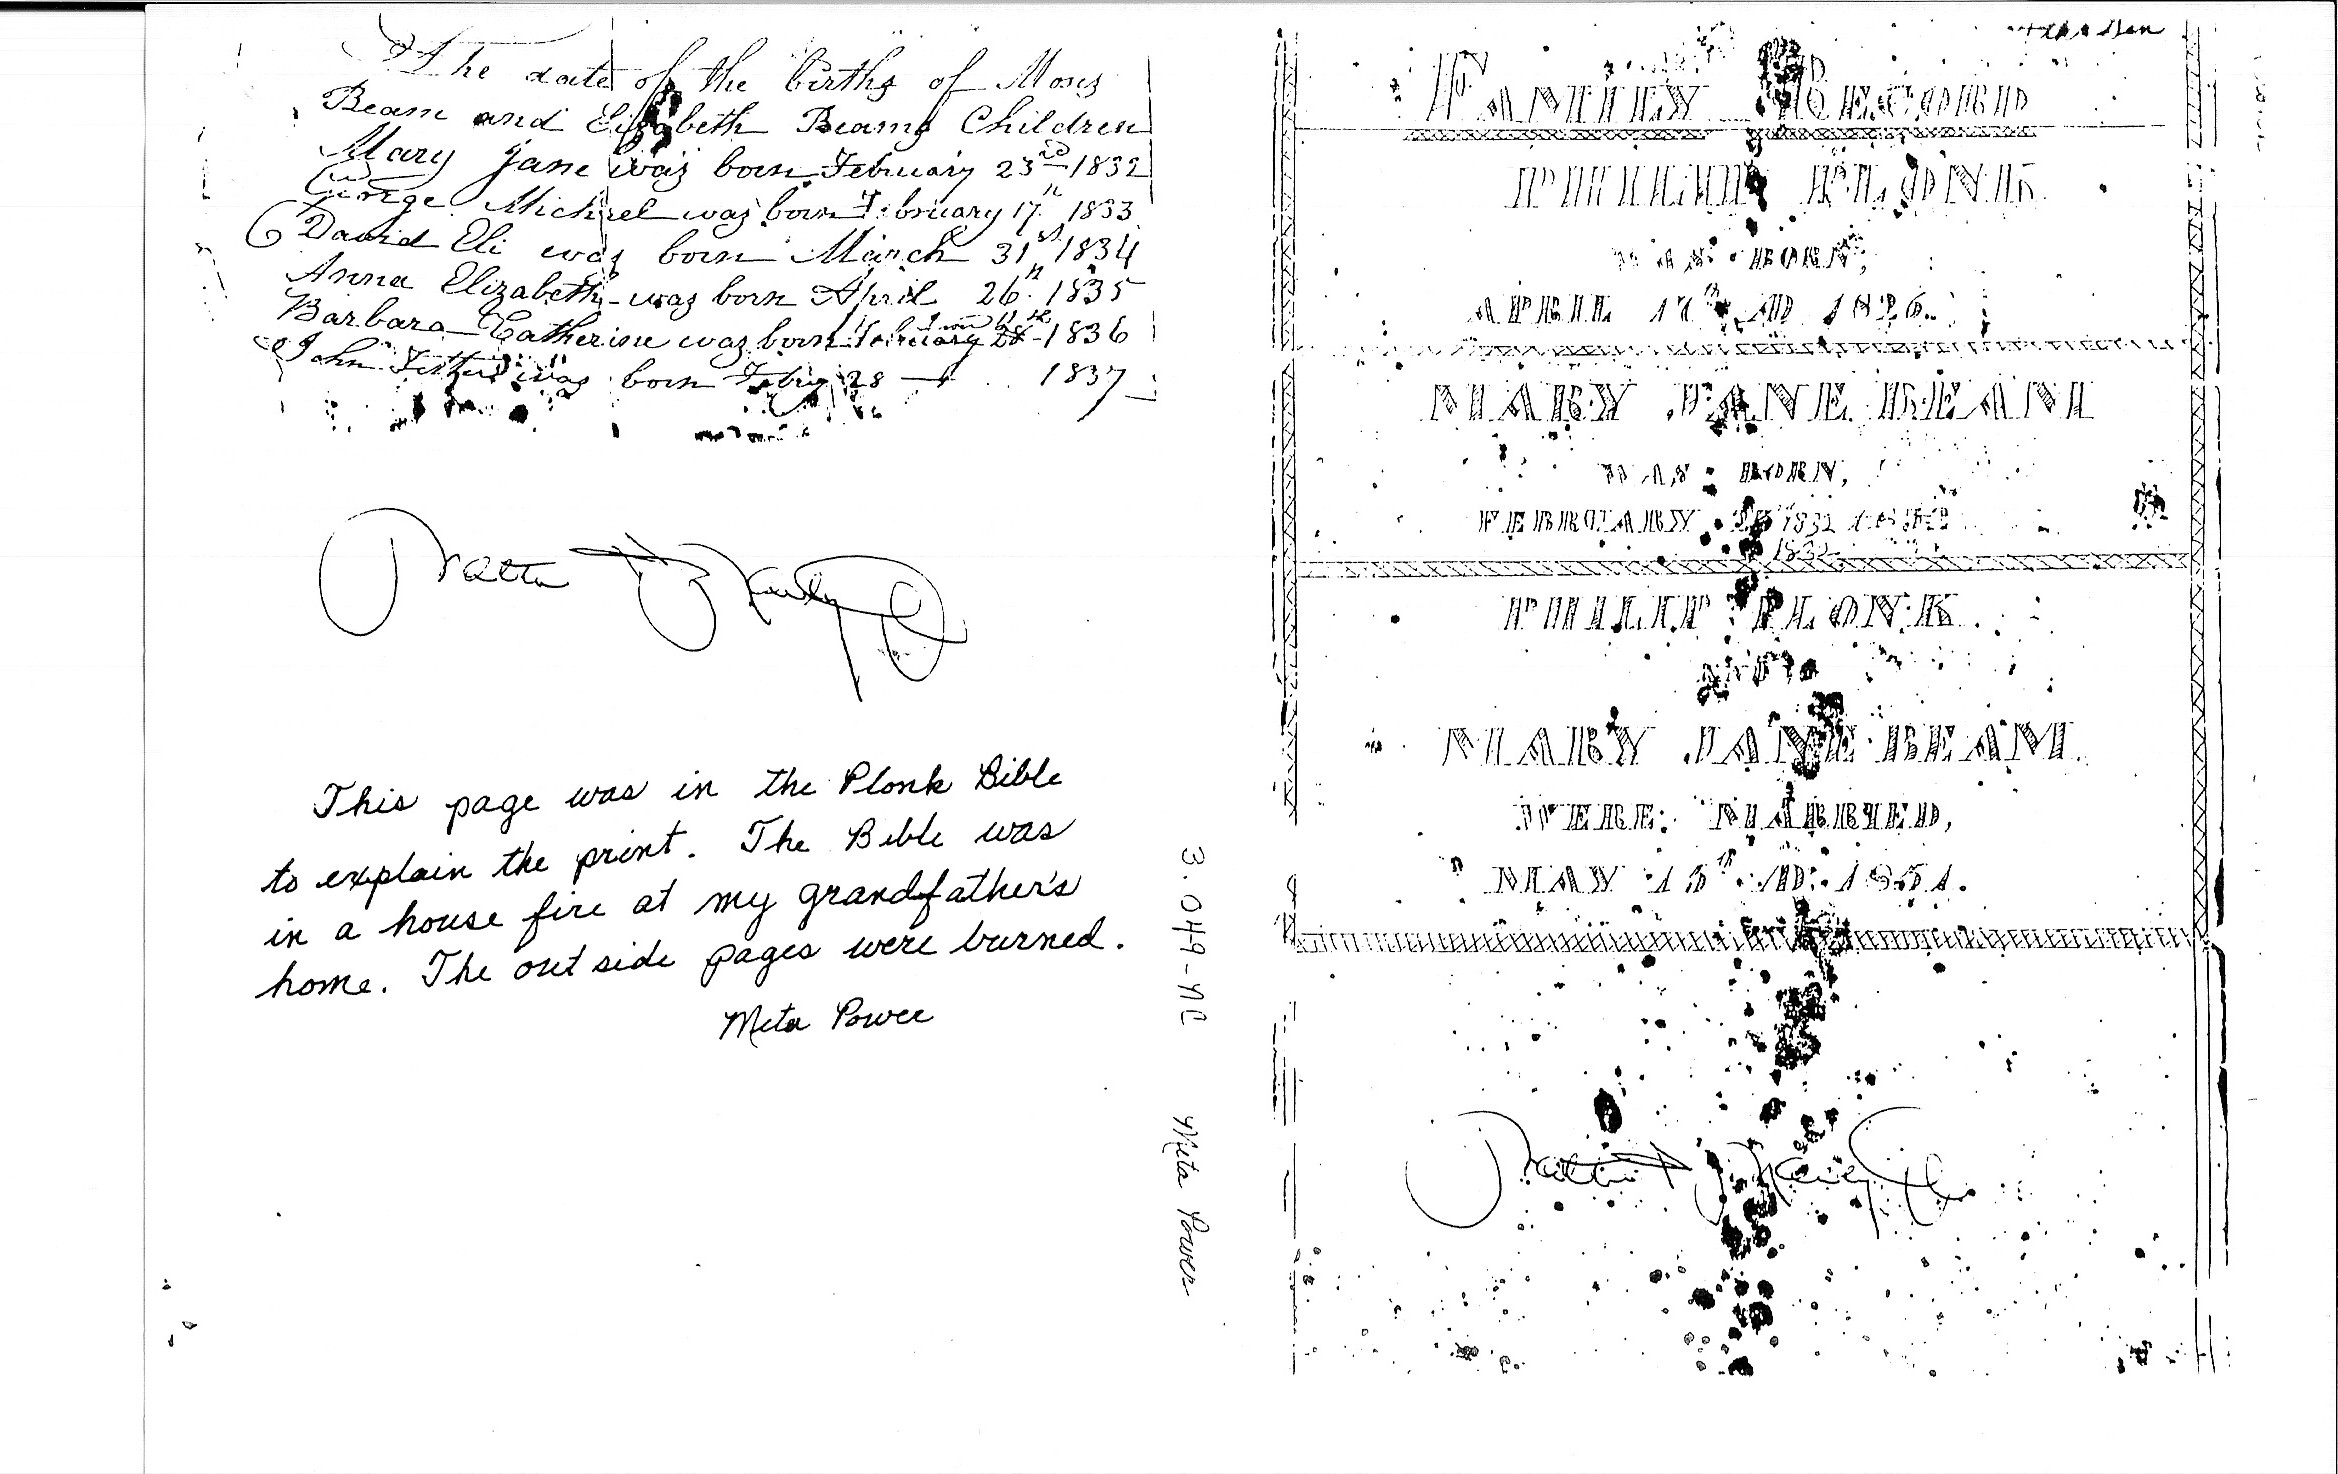 The date of the births of Moses
Beam and Elizabeth Beams Children
Mary Jane was born February 23rd 1832
George Michael was born February 17th 1833
David Eli was born March 31st 1834
Anna Elizabeth was born April 26th 1835
Barbara Catherine was born February 28 1836
John was born Febry 28 1837
This page was in the Plonk Bible
to explain the print. The Bible was
in a house fire at my grandfather's
home. The out side pages were burned.
Meta Power
3.049-NC Meta Power
FAMILEY RECORD
PHILIP PLONK
WAS BORN,
APRIL 17th AD 1826.
MARY JANE BEAM
WAS BORN,
FEBRUARY 1832
1832
PHILIP PLONK
AND
MARY JANE BEAM
WERE MARRIED,
MAY 15th AD. 1851.